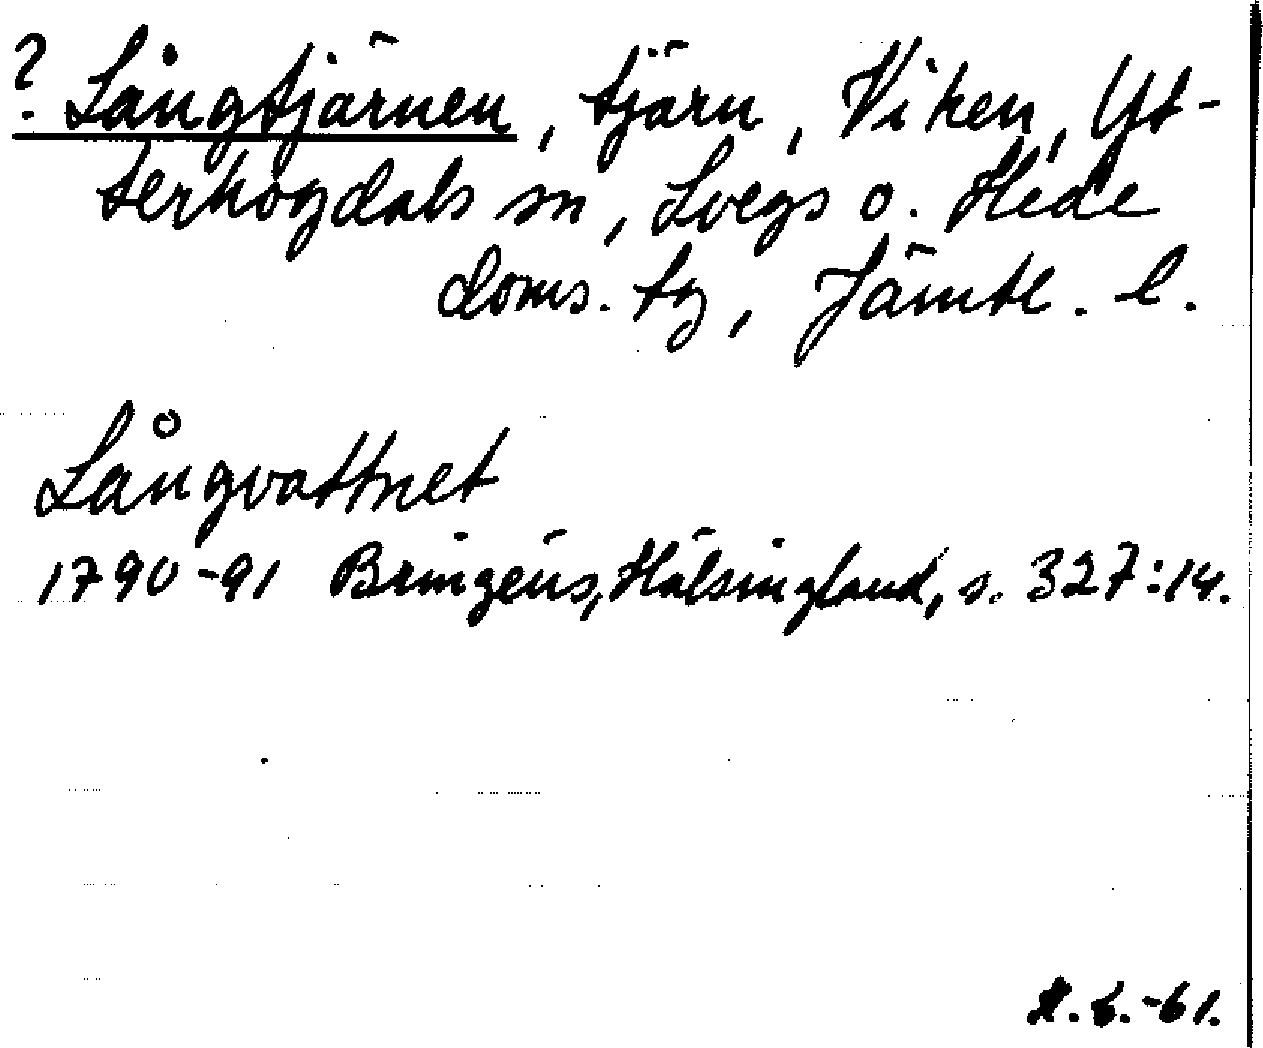 ? Långtjärnen, tjärn, Viken, Yt-
terhogdals sn, Svegs o. Hede
doms. tg, Jämtl. l.
Långvattnet
1790-91 Bringéus, Hälsingland, s. 327:14.
-61.